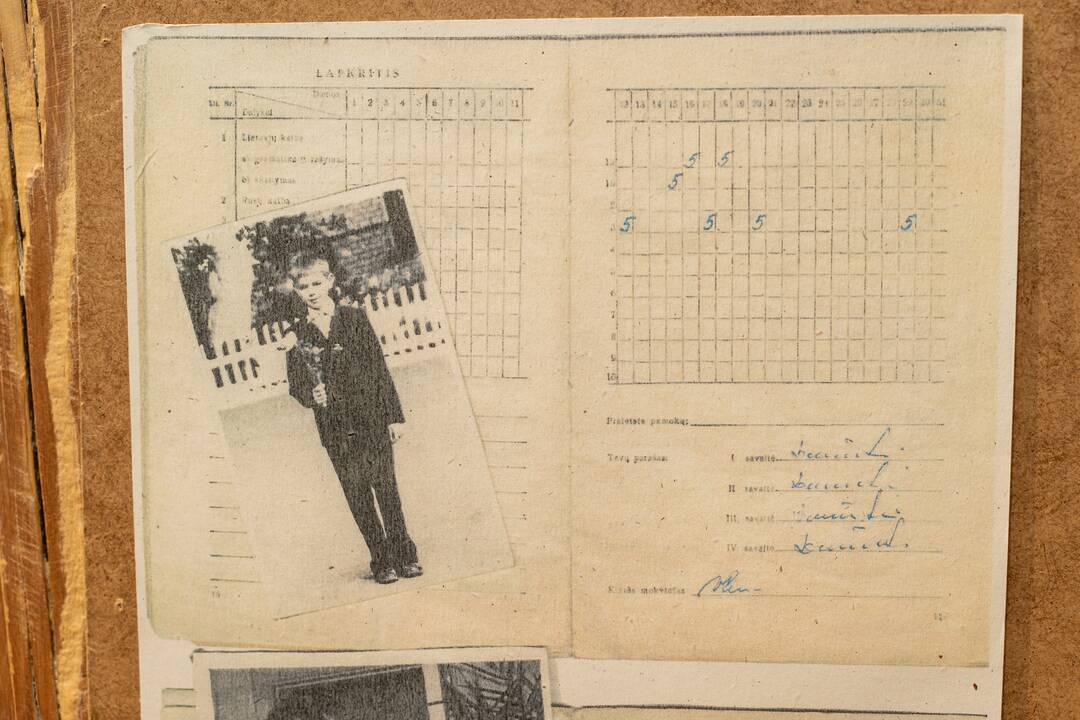 LAPKRITIS
Dienos
1 2 3 4 5 6 7 8 9 10 11
Eil. Nr.
Dalykai
1 Lietuvių kalba
a) gramatika ir rašymas
b) skaitymas
2 Rusų kalba
12 13 14 15 16 17 18 19 20 21 22 23 24 25 26 27 28 29 30 31
5 5
5
5 5 5 5
6
7
8
9
10
Praleista pamokų:
Tėvų parašas: I savaitė
II savaitė
III savaitė
IV savaitė
Klasės mokytojas